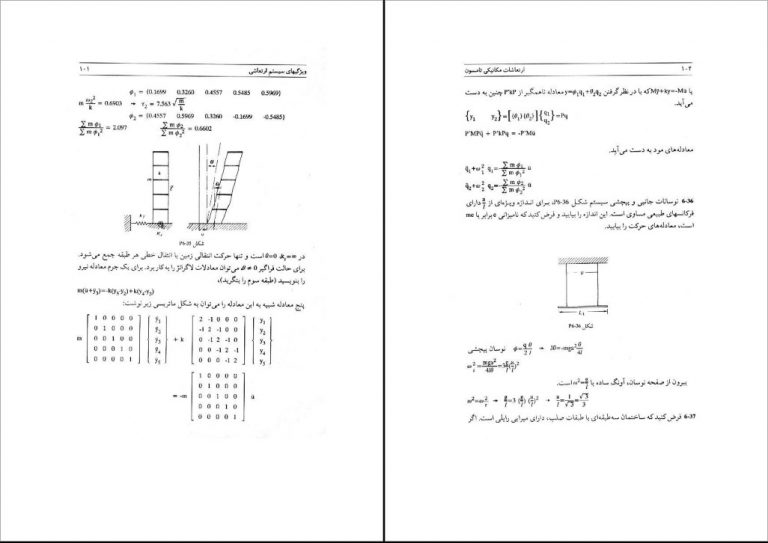 ویژگیهای سیستم ارتعاشی ۱۰۱
φ₁ = (0.1699 0.3260 0.4557 0.5485 0.5969)
m ω₂²/k = 0.6903 → τ₂ = 7.563 √(m/k)
φ₂ = (0.4557 0.5969 0.3260 -0.1699 -0.5485)
Σ m φ₁ / Σ m φ₁² = 2.097 Σ m φ₂ / Σ m φ₂² = 0.6602
شکل P6-35
در K=∞، θ=0 است و تنها حرکت انتقالی زمین با انتقال خطی هر طبقه جمع می‌شود.
برای حالت فراگیر θ ≠ 0 می‌توان معادلات لاگرانژ را به کار برد. برای یک جرم معادله نیرو
را بنویسید (طبقه سوم را بنگرید)،
m(ü+ÿ₃)=-k(y₃-y₂)+k(y₄-y₃)
پنج معادله شبیه به این معادله را می‌توان به شکل ماتریسی زیر نوشت:
m [1 0 0 0 0] {ÿ₁} + k [2 -1 0 0 0] {y₁}
[0 1 0 0 0] {ÿ₂} [-1 2 -1 0 0] {y₂}
[0 0 1 0 0] {ÿ₃} [0 -1 2 -1 0] {y₃}
[0 0 0 1 0] {ÿ₄} [0 0 -1 2 -1] {y₄}
[0 0 0 0 1] {ÿ₅} [0 0 0 -1 2] {y₅}
= -m [1 0 0 0 0] ü
[0 1 0 0 0]
[0 0 1 0 0]
[0 0 0 1 0]
[0 0 0 0 1]
۱۰۲ ارتعاشات مکانیکی تامسون
یا Mÿ+ky=-Mü که با در نظر گرفتن y=φ₁q₁+φ₂q₂ معادله ناهمگیر از P'kP چنین به دست
می‌آید.
{y₁ y₂}=[(φ₁) (φ₂)]{q₁ q₂}=Pq
P'MPq̈ + P'kPq = -P'Mü
معادله‌های مود به دست می‌آید.
q̈₁+ω₁² q₁=-Σ m φ₁/Σ m φ₁² ü
q̈₂+ω₂² q₂=-Σ m φ₂/Σ m φ₂² ü
6-36 نوسانات جانبی و پیچشی سیستم شکل P6-36، برای اندازه ویژه‌ای از دارای
فرکانسهای طبیعی مساوی است. این اندازه را بیابید و فرض کنید که نامیزانی e برابر با me
است، معادله‌های حرکت را بیابید.
شکل P6-36
نوسان پیچشی
بیرون از صفحه نوسان، آونگ ساده با است.
6-37 فرض کنید که ساختمان سه‌طبقه‌ای با طبقات صلب، دارای میرایی رایلی است. اگر